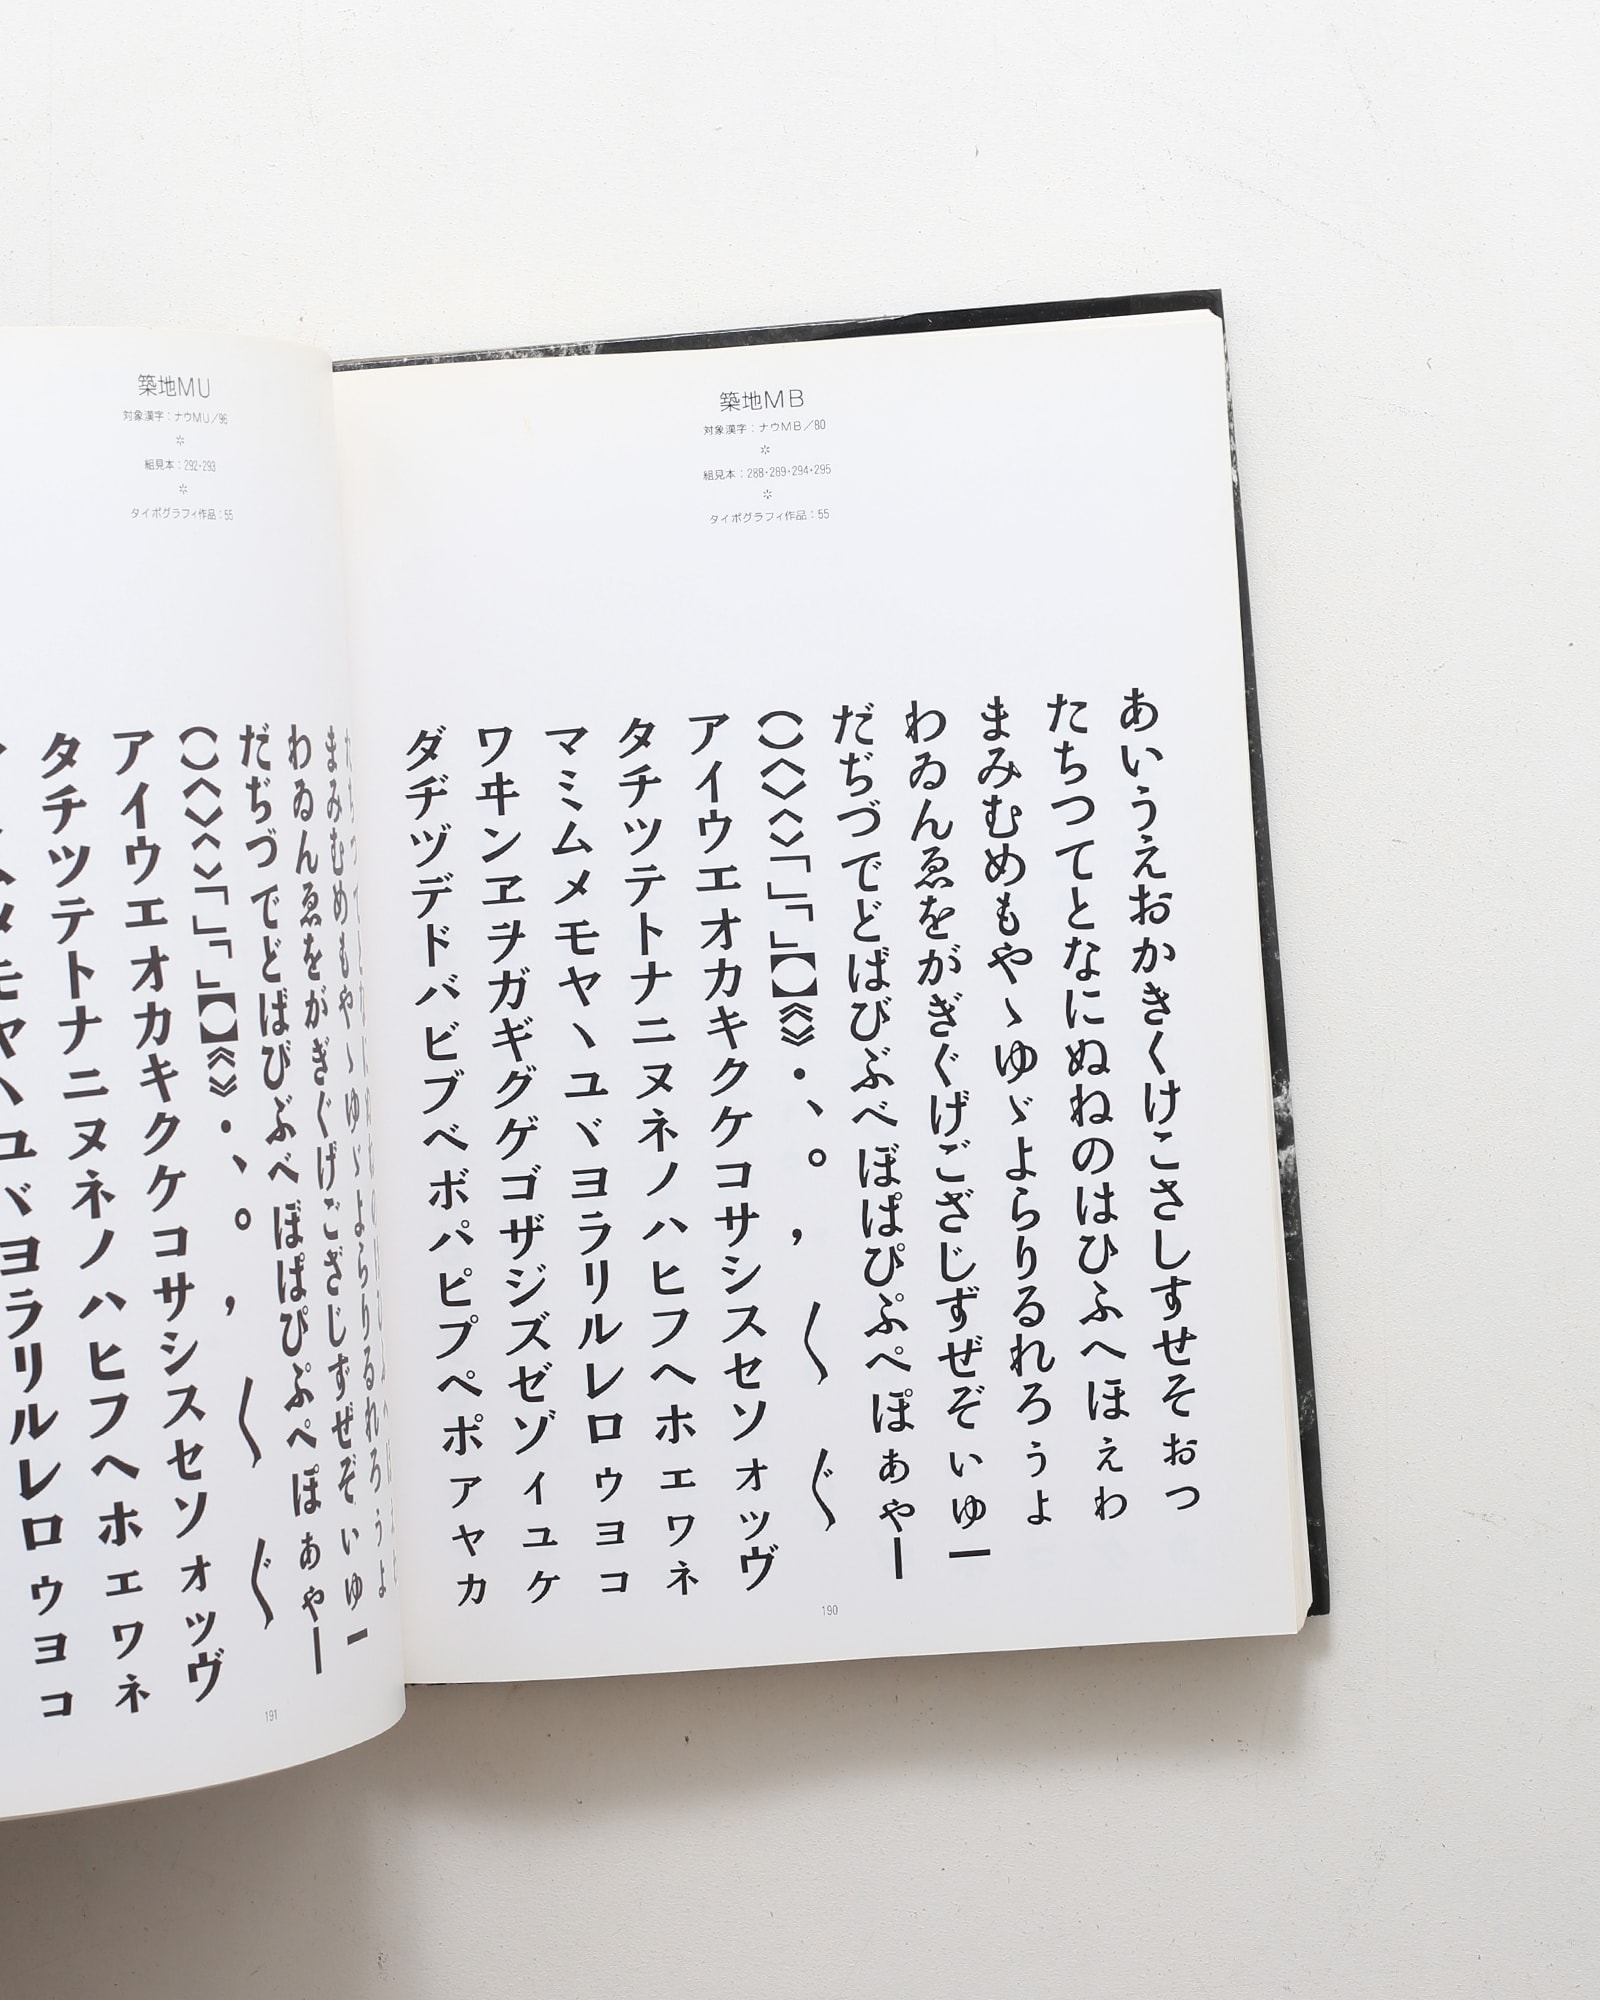 築地MB
対象漢字：ナウMB／80
✲
組見本：288・289・294・295
✲
タイポグラフィ作品：55
あいうえおかきくけこさしすせそぉっ
たちつてとなにぬねのはひふへほぇゎ
まみむめもやゝゆゞよらりるれろぅょ
わゐんゑをがぎぐげござじずぜぞぃゅー
だぢづでどばびぶべぼぱぴぷぺぽぁゃー
（）〈〉〈〉「」「」【】《》・、。，〱〲
アイウエオカキクケコサシスセソォッヴ
タチツテトナニヌネノハヒフヘホェヮネ
マミムメモヤヽユヾヨラリルレロゥョコ
ワヰンヱヲガギグゲゴザジズゼゾィュヶ
ダヂヅデドバビブベボパピプペポァャヵ
190
築地MU
対象漢字：ナウMU／96
✲
組見本：292・293
✲
タイポグラフィ作品：55
まみむめもやゝゆゞよらりるれろぅょ
わゐんゑをがぎぐげござじずぜぞぃゅー
だぢづでどばびぶべぼぱぴぷぺぽぁゃー
（）〈〉〈〉「」「」【】《》・、。，〱〲
アイウエオカキクケコサシスセソォッヴ
タチツテトナニヌネノハヒフヘホェヮネ
ユヾヨラリルレロゥョコ
191